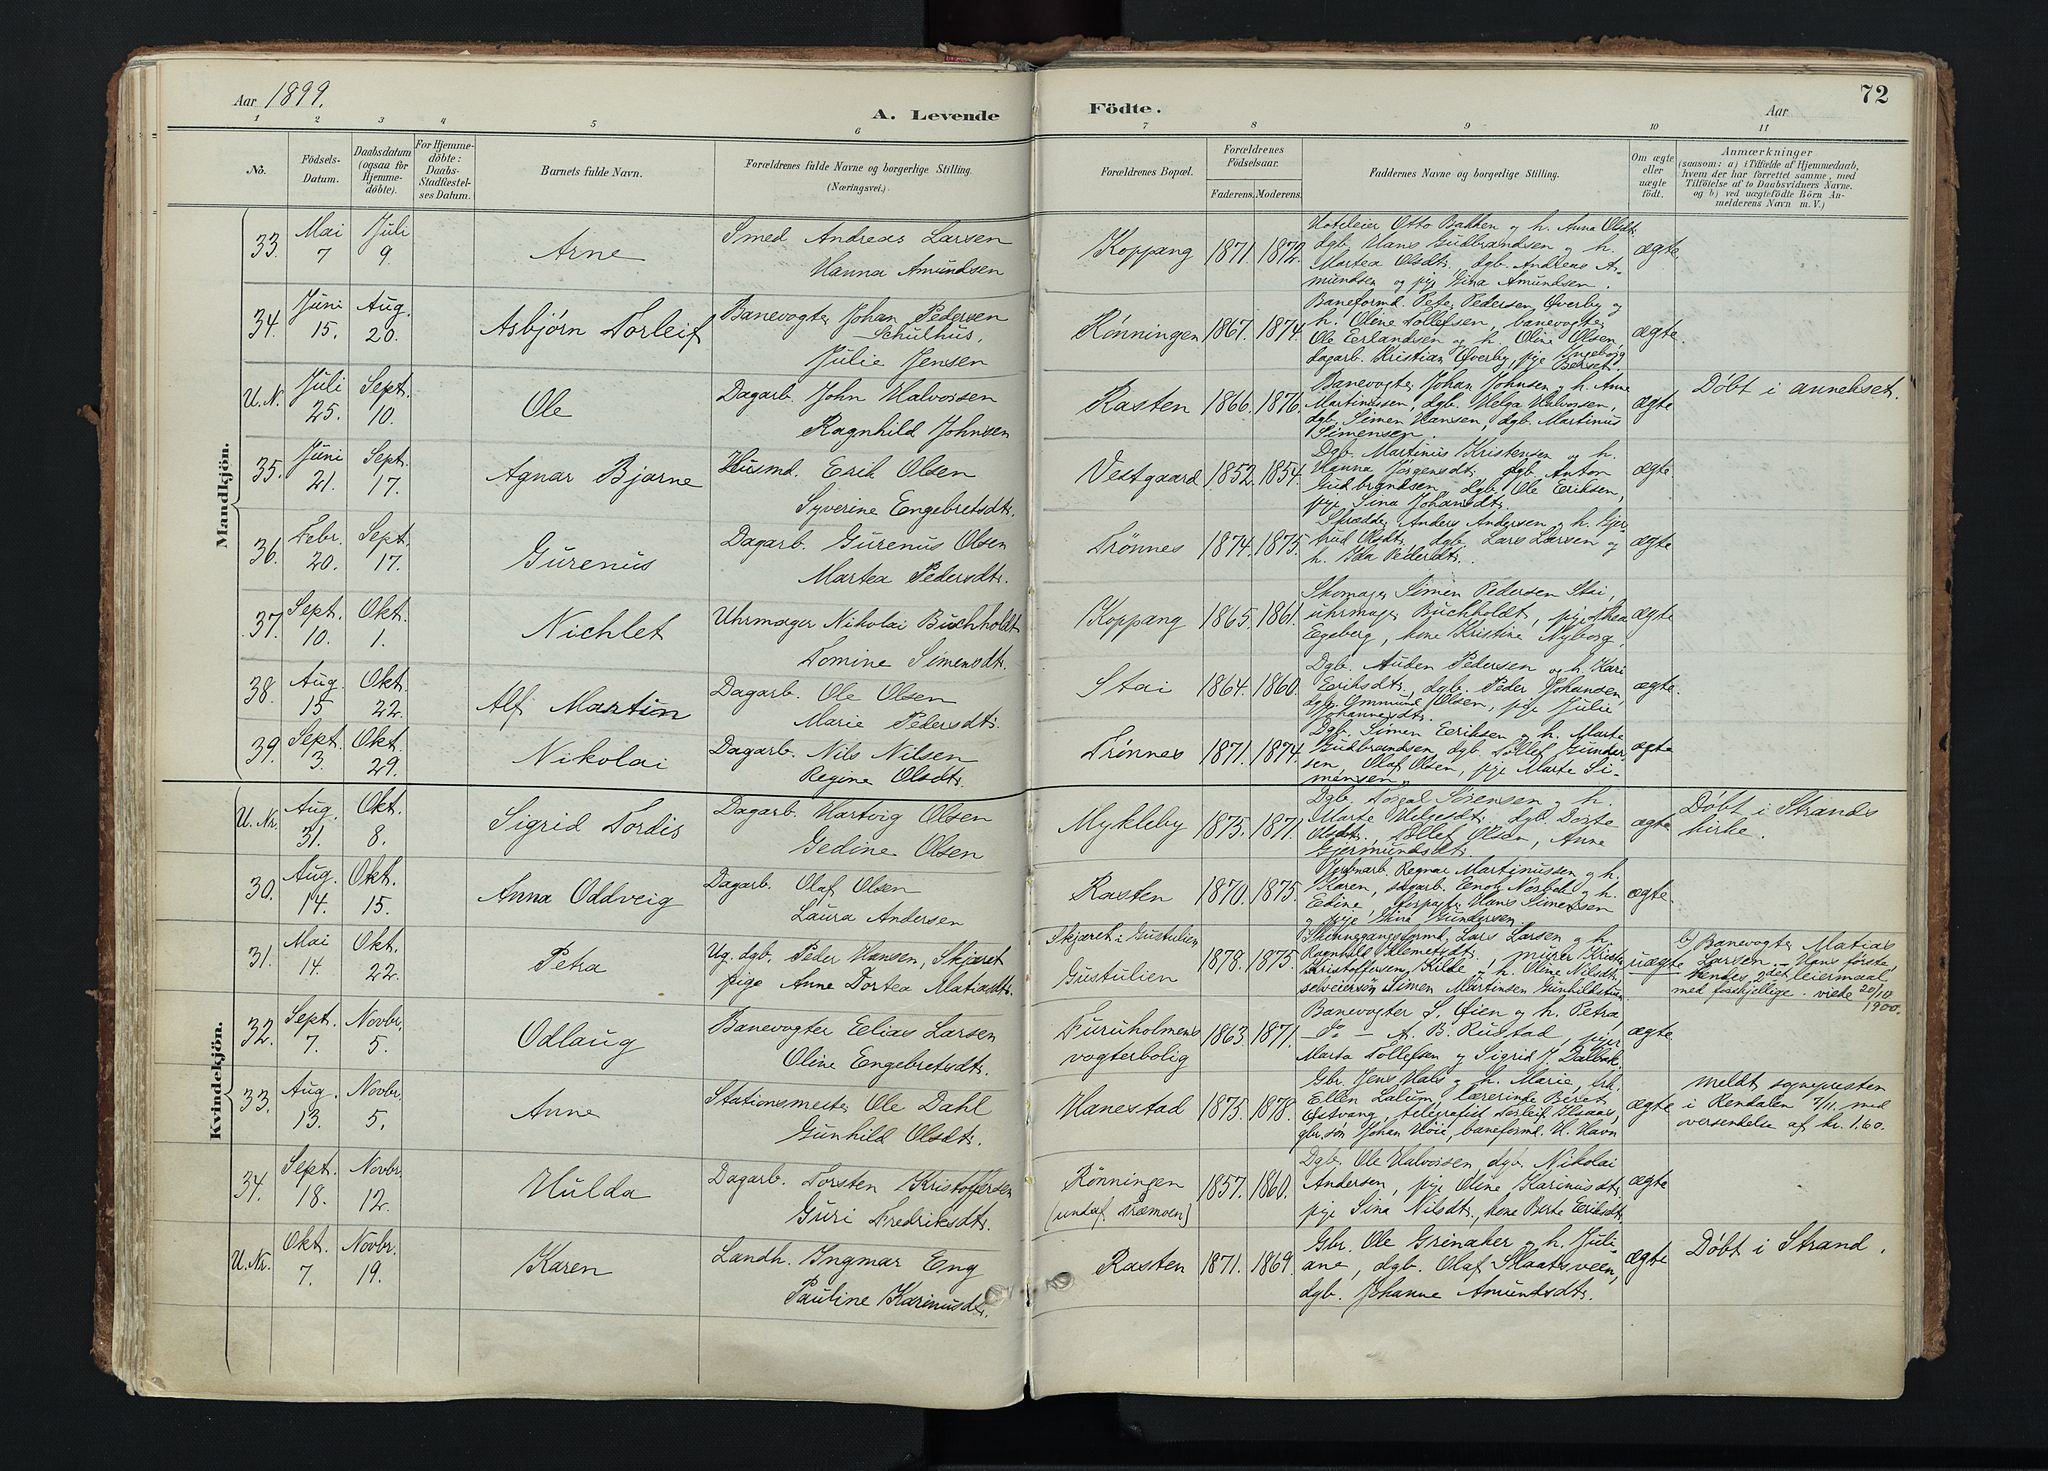 Aar 1899.
A. Levende Födte.
Aar
72
1 2 3 4 5 6 7 8 9 10 11
No.
Födsels-Datum.
Daabsdatum (ogsaa for Hjemme-döbte).
For Hjemme-döbte: Daabs-Stadfæstel-ses Datum.
Barnets fulde Navn.
Forældrenes fulde Navne og borgerlige Stilling. (Næringsvei.)
Forældrenes Bopæl.
Forældrenes Födselsaar.
Faderens. Moderens.
Faddernes Navne og borgerlige Stilling.
Om ægte eller uægte födt.
Anmærkninger
(saasom: a) i Tilfælde af Hjemmedaab,
hvem der har forrettet samme, med
Tilföielse af to Daabsvidners Navne.
og b) ved uægtefödte Börn An-
melderens Navn m. V.)
Mandkjön.
33. Mai 7 Juli 9 Arne Smed Andreas Larsen
Hanna Amundsen
Koppang 1871. 1872. Hoteleier Otto Bakken og h. Anna Olsdt.
dgb. Hans Gudbrandsen og h.
Martea Olsdt. dgb. Andreas A-
mundsen og pige Gina Amundsen.
ægte.
34. Juni 15. Aug. 20. Asbjørn Torleif Banevogter Johan Pedersen
Schulhus,
Julie Jensen
Rønningen 1867. 1874. Baneformd. Peter Pedersen Øverby og
h. Oline Tollefsen, banevogter
Ole Erlandsen og h. Oline Olsen,
dagarb. Kristian Øverby, pige Ingeborg
Berset.
ægte.
U.N. Juli 25. Sept. 10. Ole Dagarb. John Halvorsen
Ragnhild Johnsen
Rasten 1866. 1876. Banevogter Johan Johnsen og h. Anne
Martinussen, dgb. Helga Halvorsen,
dgb. Simen Hansen, dgb. Martinus
Simensen.
ægte Døbt i annekset.
35. Juni 21. Sept. 17. Agnar Bjarne Husmd. Erik Olsen
Syverine Engebretsdtr.
Vestgaard 1852. 1854. Dgb. Martinus Kristensen og h.
Hanna Jørgensdt. dgb. Anton
Gudbrandsen, dgb. Ole Eriksen,
pige Sina Johansdtr.
ægte
36. Febr. 20. Sept. 17. Gurenus Dagarb. Gurenus Olsen
Martea Pedersdtr.
Trønnes 1874. 1875. Skrædder Anders Andersen og h. Gjer-
trud Olsdtr. dgb. Lars Larsen og
h. Ida Pedersdtr.
ægte
37. Sept. 10. Okt. 1. Nichlet Uhrmager Nikolai Buchholdt
Tomine Simensdt.
Koppang 1865. 1861. Skomager Simen Pedersen Stai,
uhrmager Buchholdt, pige Thea
Egeberg, kone Kristine Nyborg.
ægte
38. Aug. 15 Okt. 22. Alf Martin Dagarb. Ole Olsen
Marie Pedersdt.
Stai 1864. 1860. Dgb. Auden Pedersen og h. Kari
Eriksdt., dgb. Peder Johansen,
dgb. Ommund Olsen, pige Julie
Johannesdt.
ægte.
39. Sept. 3. Okt. 29. Nikolai Dagarb. Nils Nilsen
Regine Olsdt.
Trønnes 1871. 1874. Dgb. Simen Eriksen og h. Marte
Gudbrandsen, dgb. Tollef Gunder-
sen, Olaf Olsen, pige Marte Si-
mensen.
ægte
Kvindekjön.
U.Nr. Aug. 31. Okt. 8. Sigrid Tordis Dagarb. Hartvig Olsen
Gedine Olsen
Mykleby 1875. 1871. Dgb. Torgal Sørensen og h.
Marte Helgesdt. dgb. Dorte
Olsdt., Tollef Olsen, Anne
Gjermundsdt.
ægte Døbt i Strands
kirke.
30. Aug. 14. Okt. 15. Anna Oddveig Dagarb. Olaf Olsen
Laura Andersen
Rasten 1870. 1875. Regnar Martinussen og h.
Karen, sagarb. Enok Norbek og h.
Edine, Hans Simensen
og pige Gina Gundersen.
ægte.
31. Mai 14. Okt. 22. Petra Ug. dgb. Peder Hansen, Skjæret
pige Anne Dortea Matiasdtr.
Skjæret i Gustulien
Gustulien
1878. 1875. Lars Larsen og h.
Ragnhild Klemetsdt. murer Krist.
Kristoffersen Kilde og h. Oline Nilsdt.
selveiersøn Simen Martinsen Gunhildstuen
uægte b) Banevogter Matias
Larsen. Hans første,
hendes det leiermaal
med forskjellige. viede 20/10
1900.
32. Sept. 7. Novbr. 5. Odlaug Banevogter Eelias Larsen
Oline Engebretsdtr.
Furuholmens
vogterbolig
1863 1871. Banevogter S. Øien og h. Petra,
do — A. B. Rustad, piger
Marta Tollefsen og Sigrid J. Dalbak.
ægte.
33. Aug. 13. Novbr. 5. Anne Stationsmester Ole Dahl
Gunhild Olsdtr.
Hanestad 1875. 1878. Gbr. Jens Hals og h. Marie, frk.
Ellen Lalum, lærerinde Beret
Østvang, telegrafist Torleif Haaas,
gbr.søn Johan Høie, baneformd. H. Havn
ægte meldt sognepresten
i Rendalen 7/11. med
oversendelse af kr. 1.60.
34. Sept. 18. Novbr. 12. Hulda Dagarb. Torsten Kristoffersen
Guri Fredriksdt.
Rønningen
(undaf Træmoen)
1857. 1860. Dgb. Ole Halvorsen, dgb. Nikolai
Andersen, pige Oline Karinusdtr.
pige Sina Nilsdt., kone Berte Eriksdt.
ægte
U.Nr. Okt. 7. Novbr. 19. Karen Landh. Ingmar Eng
Pauline Karinusdtr.
Rasten 1871. 1869. Gbr. Ole Grinaker og h. Juli-
ane, dgb. Olaf Skaatsveen,
dgb. Johanne Amundsdtr.
ægte Døbt i Strand.